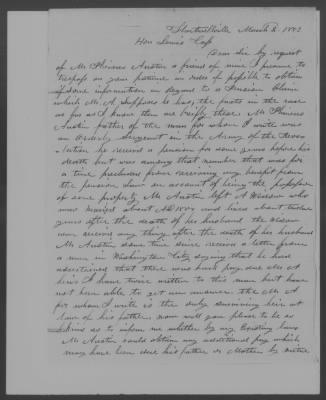 March 8
Hon Lewis Cass
Dear Sir by request
of Mr Phineas Austin a friend of mine I presume to
trespass on your patience in order if possible to obtain
some information in regard to a Pension Claim
which Mr A Suppose he has, the facts in the case
as far as I know them are briefly these Mr Phineas
Austin father of the man for whom I write was
an Orderly Sergeant in the Army of the Revo
lution he received a pension for some years before his
death but was among that number that was for
a time precluded from receiving any benefit from
the pension law on account of being the possessor
of some property Mr Austin left A Widdow who
was married about and lived about twelve
years after the death of her husband the Widdow
never received any thing after the death of her husband
Mr Austin some time since received a letter from
a man in Washington City saying that he had
advertised that there was back pay due Mr A
heirs I have twice written to this man but have
not been able to get any answer the Mr A
for whom I write is the only surviving heir at
law of his father now will you please to be so
kind as to inform me whether by any Existing laws
Mr Austin could obtain any additional pay which
may have been due his father or Mother by virtue